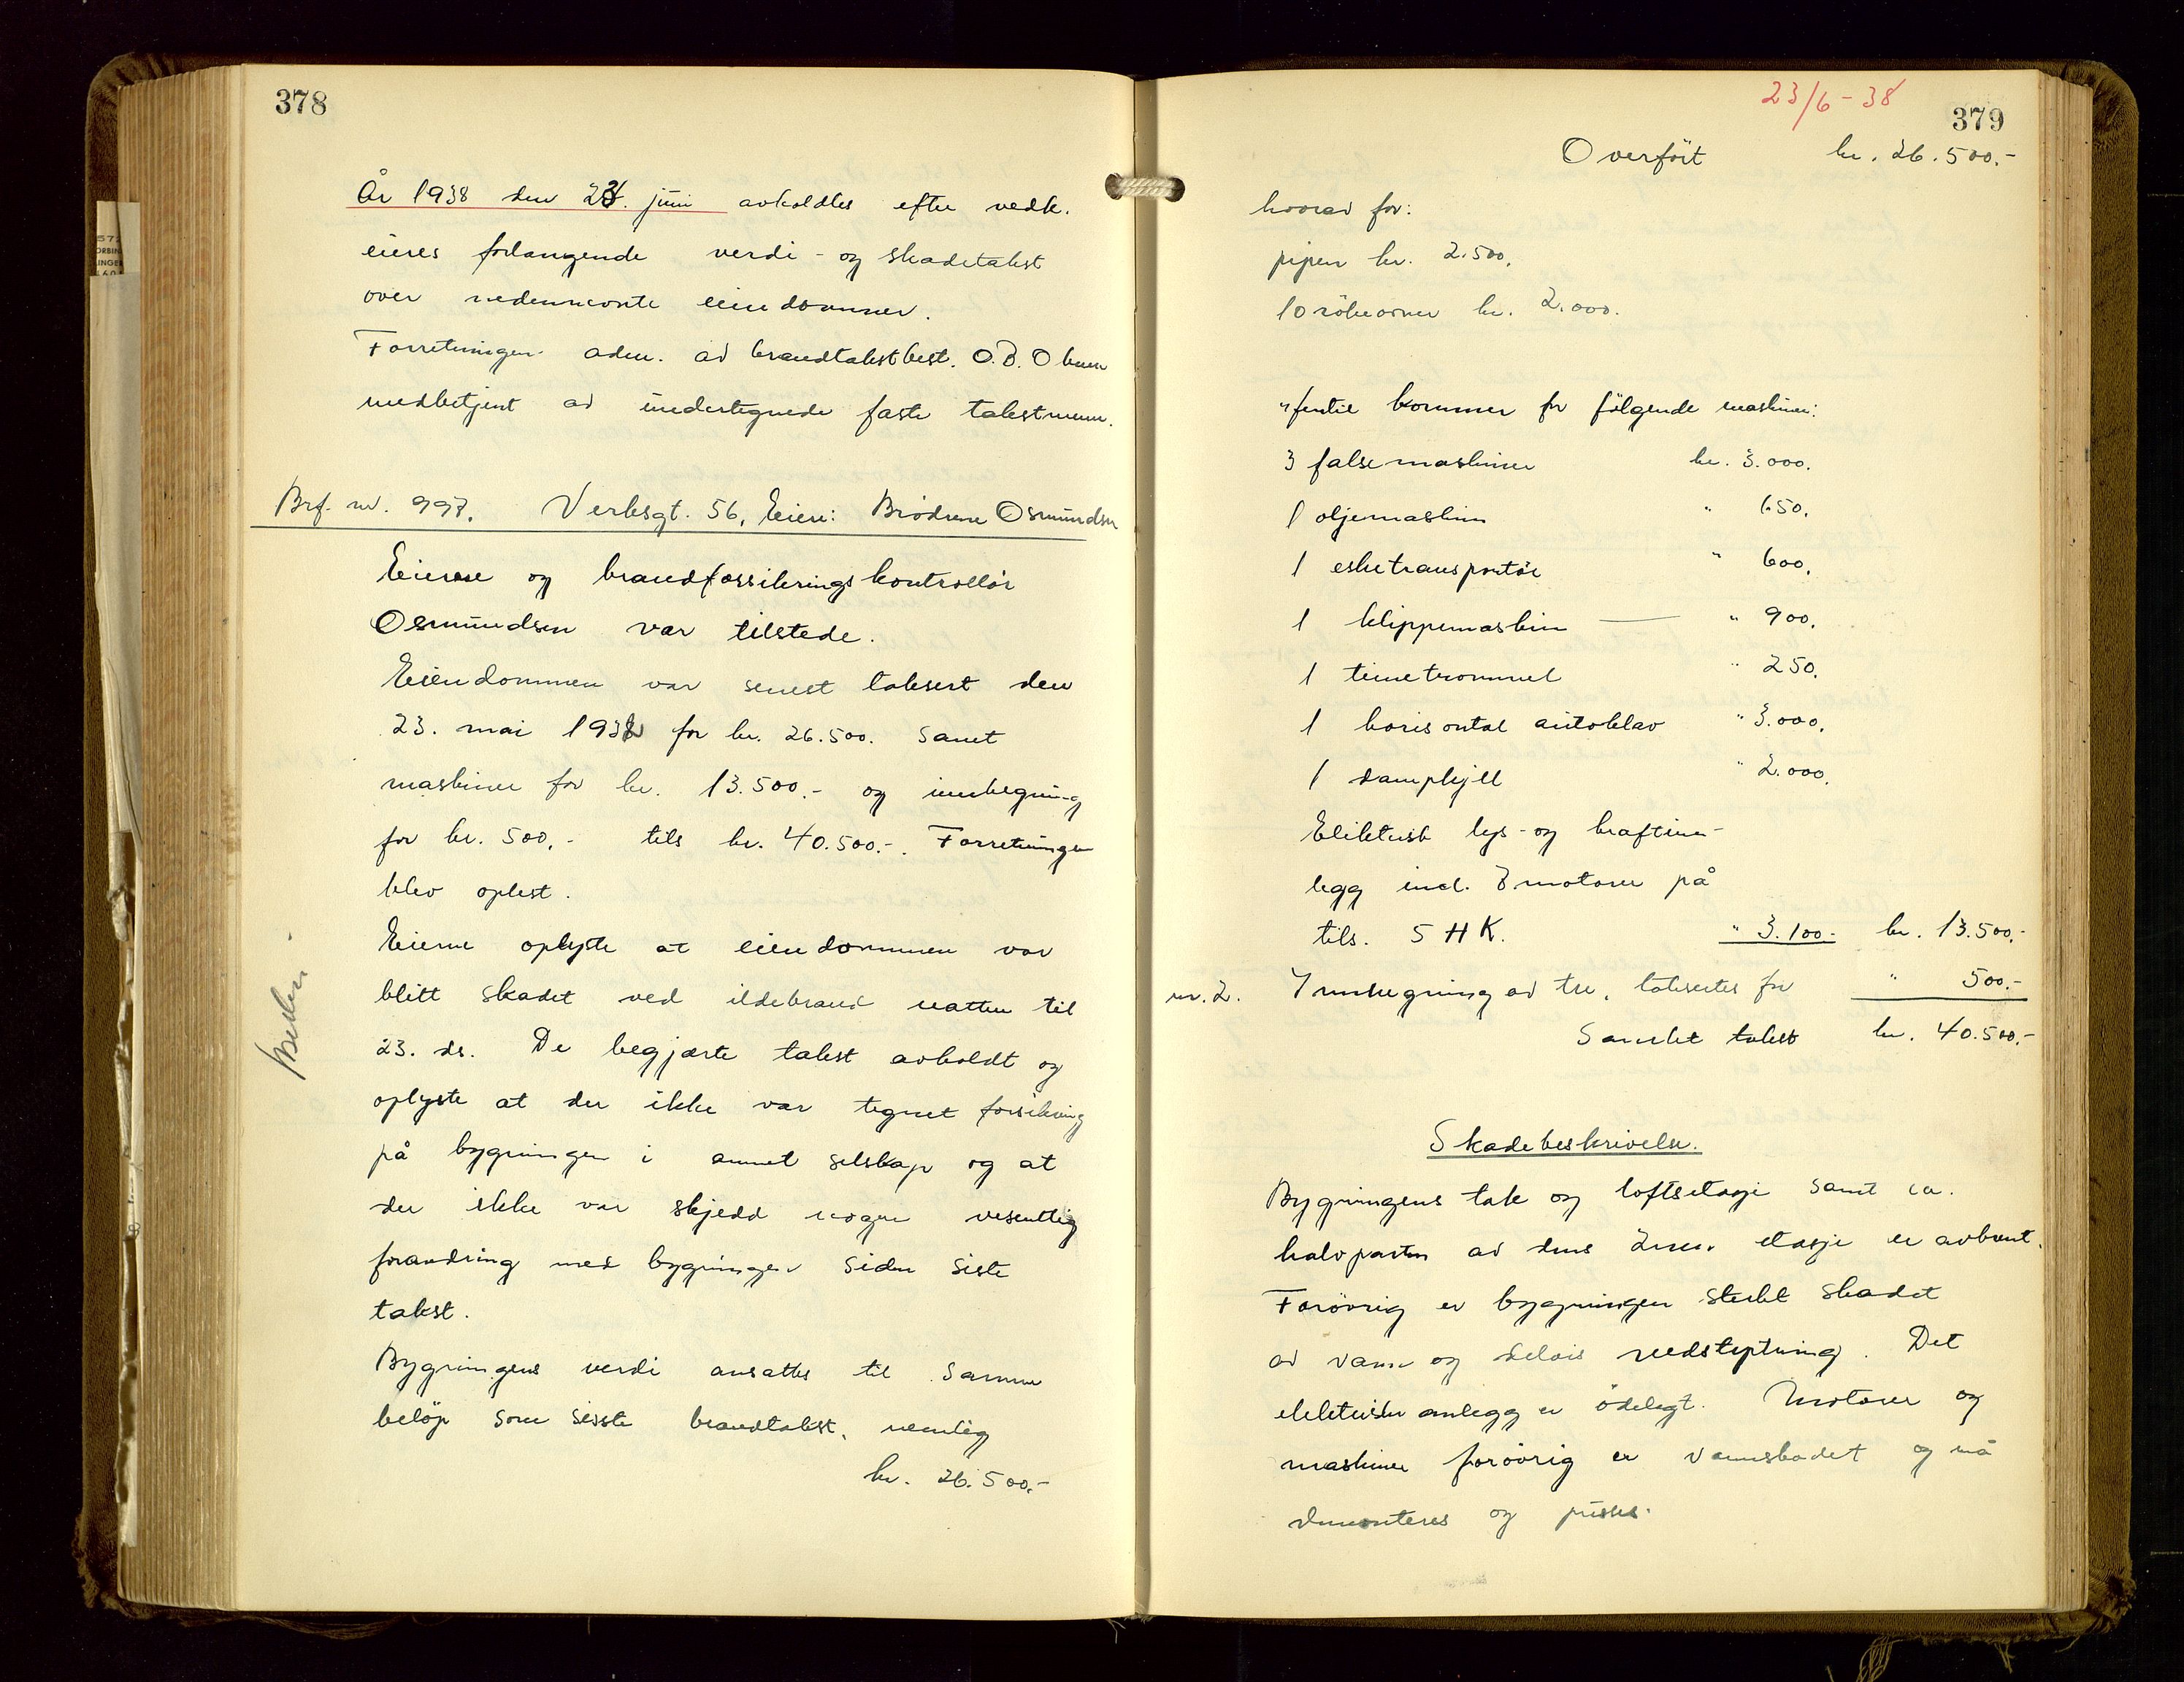 378
År 1938 den 23. juni avholdtes efter vedk.
eieres forlangende verdi- og skadetakst
over nedennevnte eiendommer.
Forretningen adm. av brandtakstbest. O.B.
medbetjent av undertegnede faste takstmenn.
Brf. nr. 997. Verksgt. 56, Eiere: Brødrene Osmundsen
Eierne og brandforsikringskontrollør
Osmundsen var tilstede.
Eiendommen var senest taksert den
23. mai 1932 for kr. 26.500. samt
maskiner for kr. 13.500.- og innhegning
for kr. 500.- tils kr. 40.500.-. Forretningen
blev oplest.
Eierne oplyste at eiendommen var
blitt skadet ved ildebrand natten til
23. ds. De begjærte takst avholdt og
oplyste at der ikke var tegnet forsikring
på bygningen i annet selskap og at
der ikke var skjedd nogen vesentlig
forandring med bygningen siden siste
takst.
Bygningens verdi ansattes til samme
beløp som sisste brandtakst, nemlig
kr. 26.500.-
23/6-38
379
Overført kr. 26.500.-
hvorav for:
pipen kr. 2.500.
10 røkeovner kr. 2.000.
Hertil kommer for følgende maskiner:
3 falsemaskiner kr. 3.000.
1 oljemaskin " 650.
1 esketransportør " 600.
1 klippemaskin — " 900.
1 tinetrommel " 250.
1 horisontal autoklav " 3.000.
1 dampkjell " 2.000.
Elektrisk lys- og kraftinn-
legg incl. 7 motorer på
tils. 5 HK. " 3.100.- kr. 13.500.-
nr. 2. Innhegning av tre, taksertes for " 500.-
Samlet takst kr. 40.500.-
Skadebeskrivelse.
Bygningens tak og loftsetasje samt ca.
halvparten av dens 2nen etasje er avbrent.
Forøvrig er bygningen sterkt skadet
av vann og delvis nedstøptning. Det
elektriske anlegg er ødelagt. Motorer og
maskiner forøvrig er vannskadet og må
demonteres og pusses.